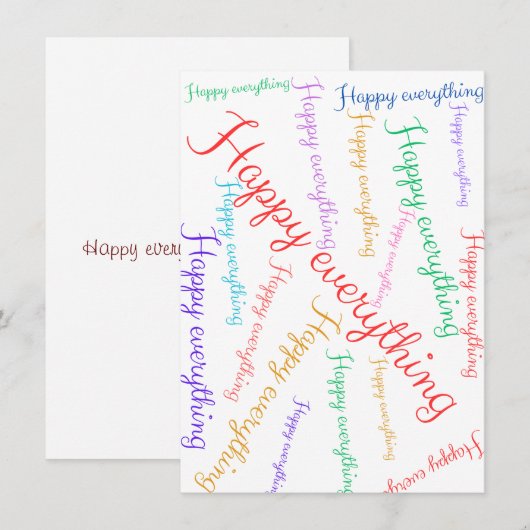 Happy everything
Happy everything
Happy everything
Happy everything
Happy everything
Happy everything
Happy everything
Happy everything
Happy everything
Happy everything
Happy every
Happy everything
Happy everything
Happy everything
Happy everything
Happy everything
Happy everything
Happy everything